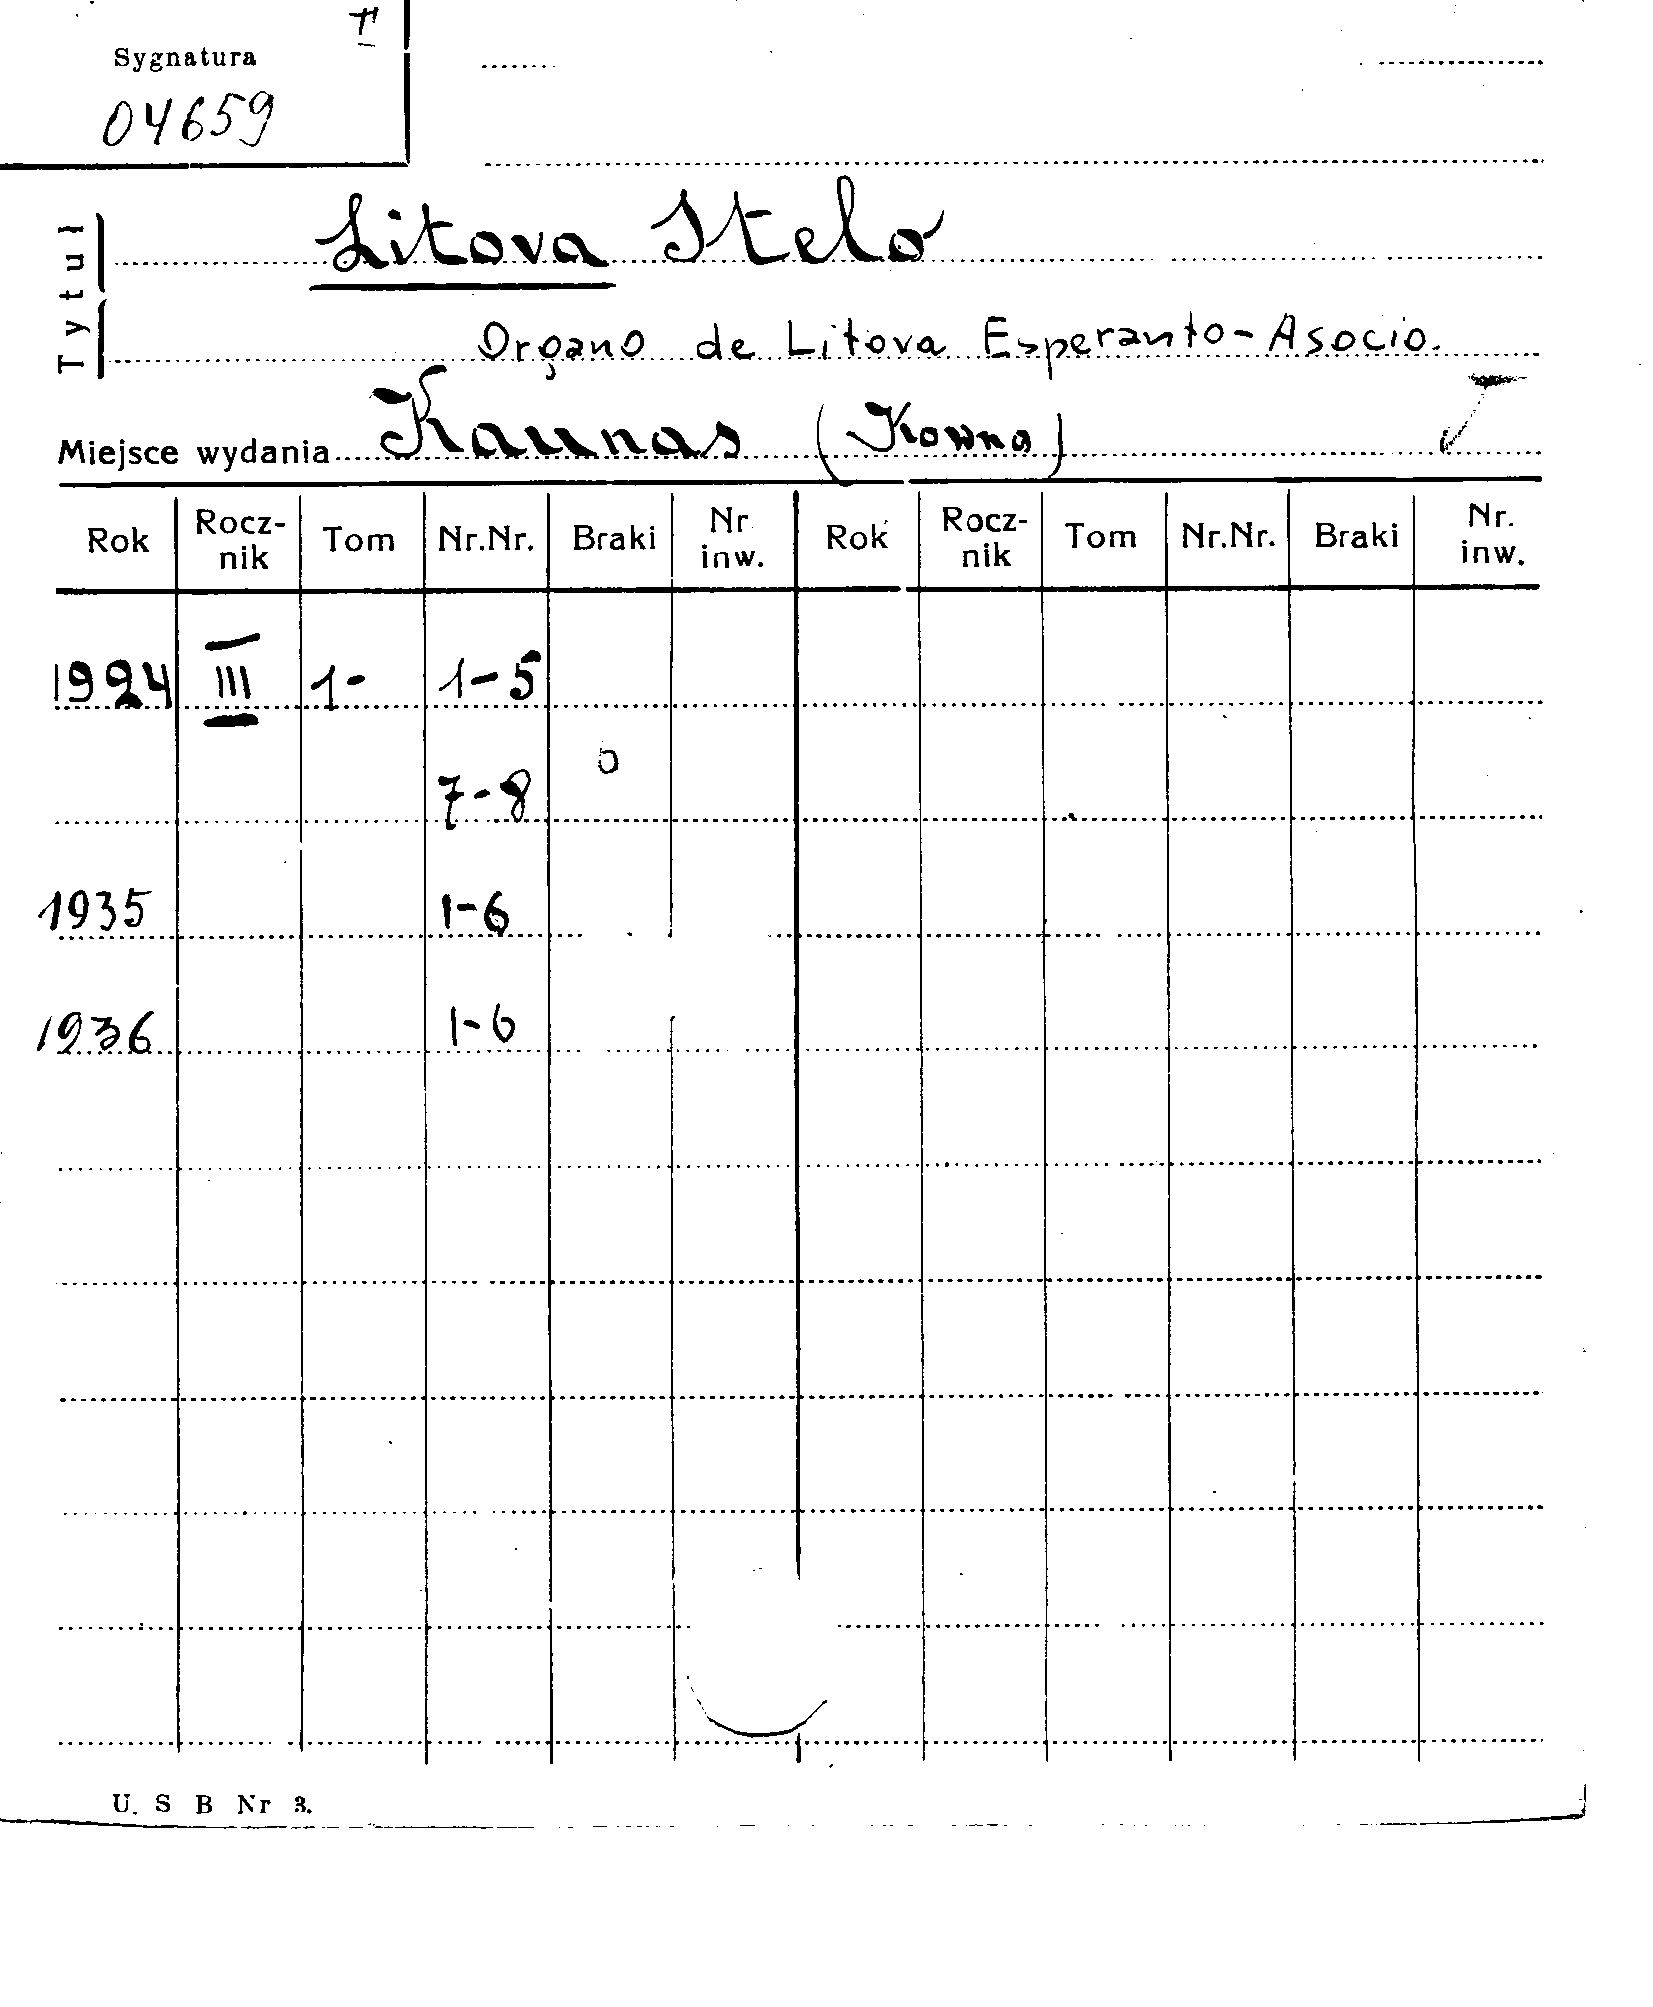 II
Sygnatura
04659
Tytuł
Litova Stelo
Organo de Litova Esperanto-Asocio.
Miejsce wydania Kaunas (Kowno)
Rok Rocz-nik Tom Nr.Nr. Braki Nr inw. Rok Rocz-nik Tom Nr.Nr. Braki Nr. inw.
1924 III 1- 1-5
7-8
1935 1-6
1936 1-6
U. S B Nr 3.